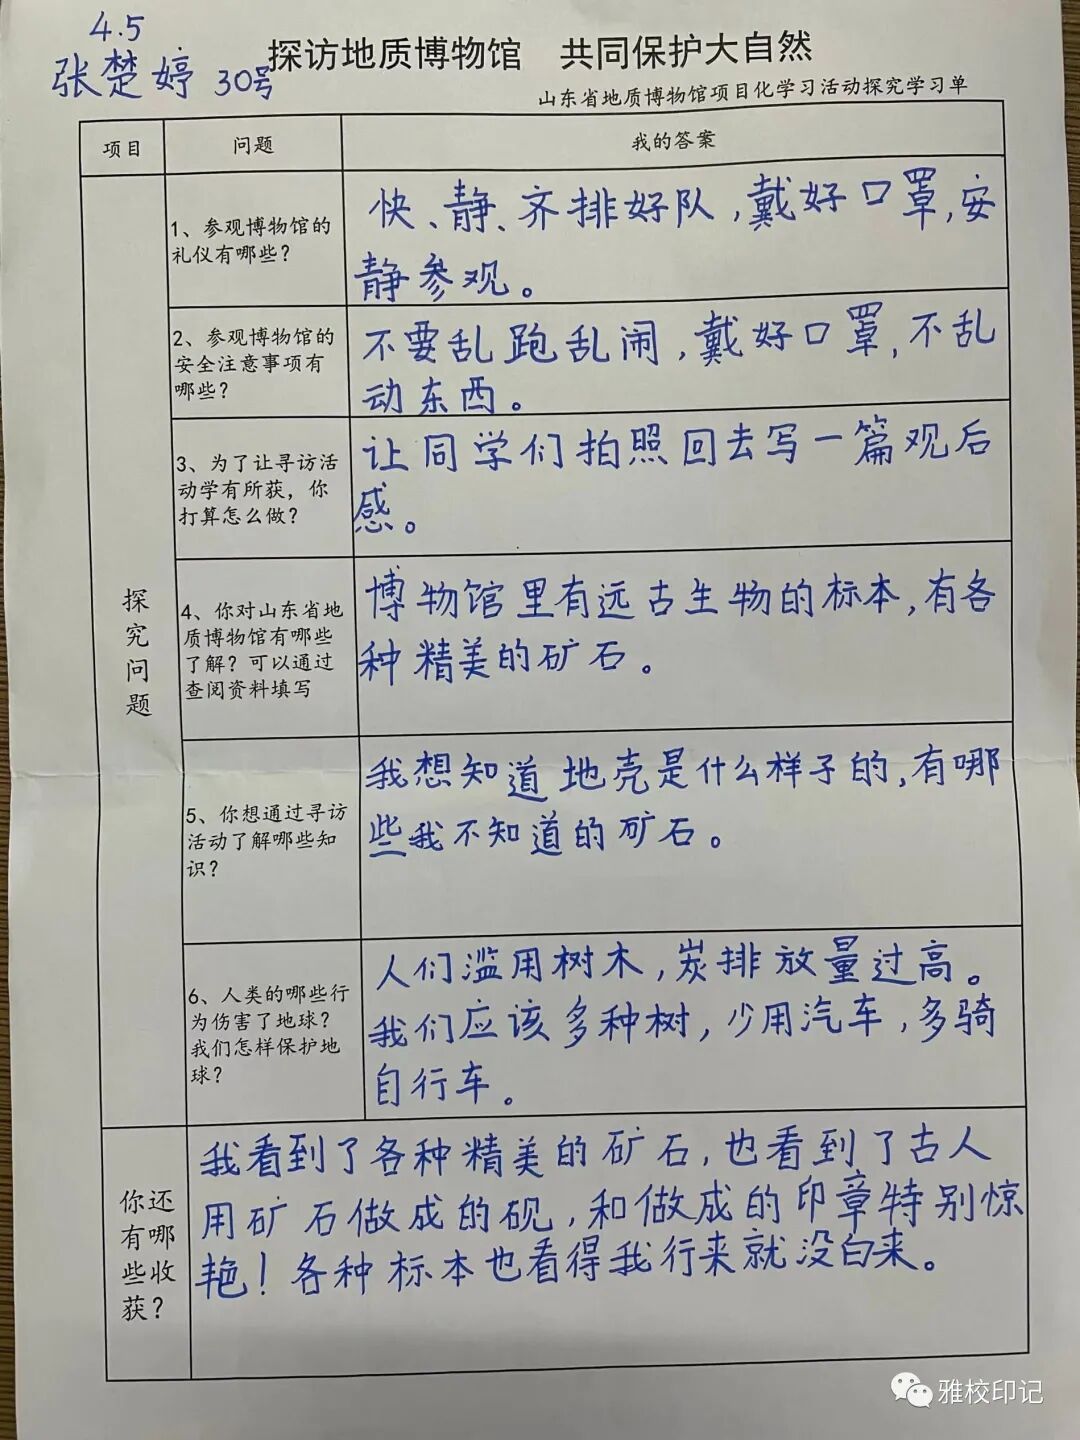 4.5
张楚婷 30号
探访地质博物馆 共同保护大自然
山东省地质博物馆项目化学习活动探究学习单
项目
问题
我的答案
探究问题
1、参观博物馆的
礼仪有哪些?
快、静、齐排好队,戴好口罩,安
静参观。
2、参观博物馆的
安全注意事项有
哪些?
不要乱跑乱闹,戴好口罩,不乱
动东西。
3、为了让寻访活
动学有所获,你
打算怎么做?
让同学们拍照回去写一篇观后
感。
4、你对山东省地
质博物馆有哪些
了解?可以通过
查阅资料填写
博物馆里有远古生物的标本,有各
种精美的矿石。
5、你想通过寻访
活动了解哪些知
识?
我想知道地壳是什么样子的,有哪
些我不知道的矿石。
6、人类的哪些行
为伤害了地球?
我们怎样保护地
球?
人们滥用树木,炭排放量过高。
我们应该多种树,少用汽车,多骑
自行车。
你还
有哪
些收
获?
我看到了各种精美的矿石,也看到了古人
用矿石做成的砚,和做成的印章特别惊
艳!各种标本也看得我行来就没白来。
雅校印记